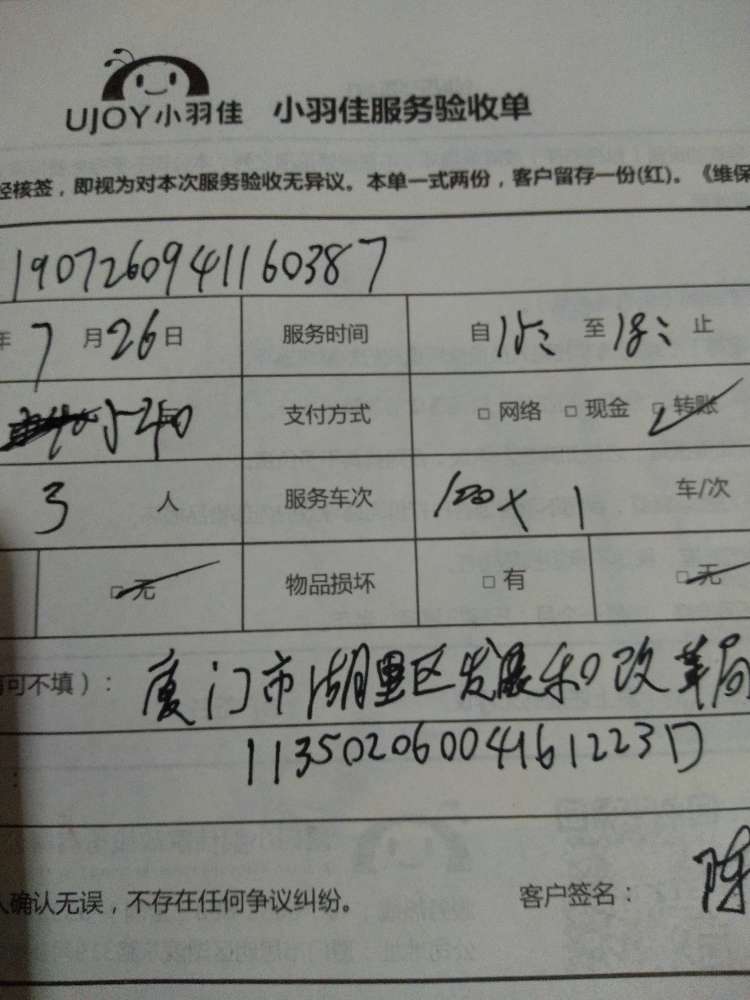 UJOY小羽佳 小羽佳服务验收单
经核签，即视为对本次服务验收无异议。本单一式两份，客户留存一份(红)。《维保
1907260941160387
年 7 月 26 日 服务时间 自 15:: 至 18:: 止
540 支付方式 □ 网络 □ 现金 □ 转账
3 人 服务车次 120 × 1 车/次
□ 无 物品损坏 □ 有 □ 无
可不填）： 厦门市湖里区发展和改革局
11350206004161223D
人确认无误，不存在任何争议纠纷。 客户签名： 陈